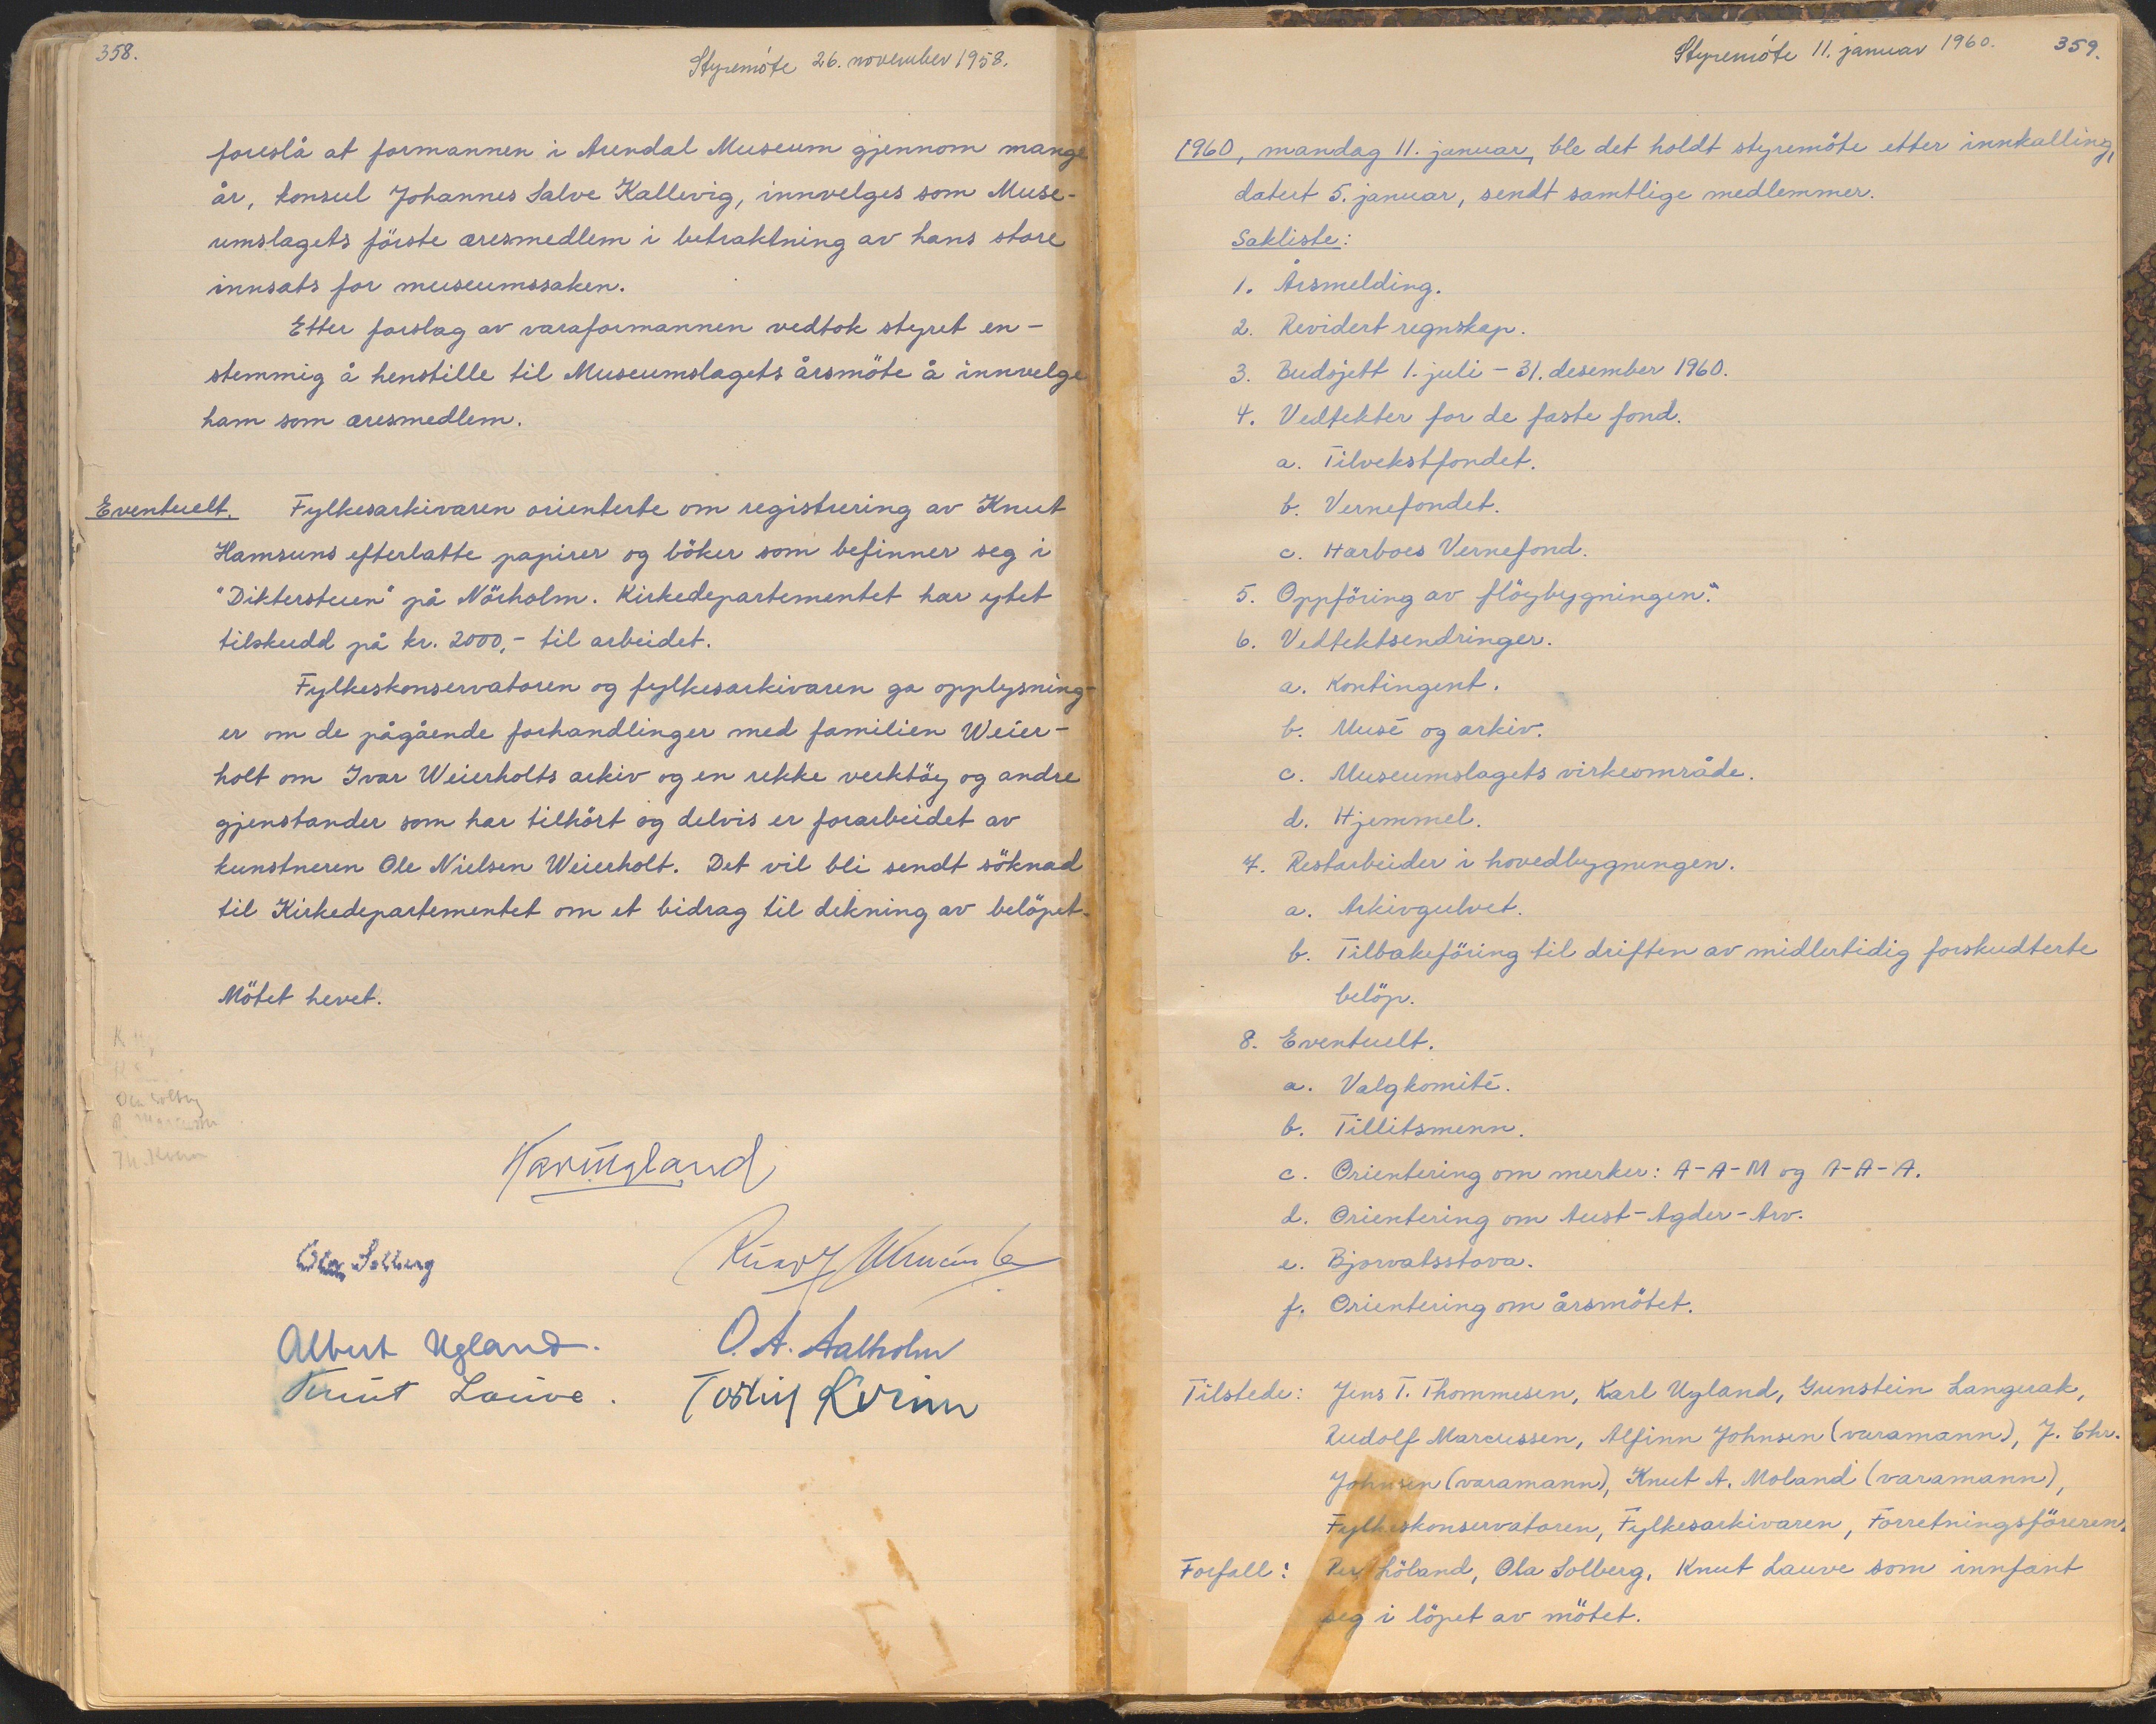 358.
Styremöte 26. november 1958.
foreslå at formannen i Arendal Museum gjennom mange
år, konsul Johannes Salve Kallevig, innvelges som Muse-
umslagets förste æresmedlem i betraktning av hans store
innsats for museumssaken.
Etter forslag av varaformannen vedtok styret en-
stemmig å henstille til Museumslagets årsmöte å innvelge
ham som æresmedlem.
Eventuelt. Fylkesarkivaren orienterte om registrering av Knut
Hamsuns efterlatte papirer og böker som befinner seg i
"Dikterstuen" på Nörholm. Kirkedepartementet har ytet
tilskudd på kr. 2000,- til arbeidet.
Fylkeskonservatoren og fylkesarkivaren ga opplysning-
er om de pågående forhandlinger med familien Weier-
holt om Ivar Weierholts arkiv og en rekke verktöy og andre
gjenstander som har tilhört og delvis er forarbeidet av
kunstneren Ole Nielsen Weierholt. Det vil bli sendt söknad
til Kirkedepartementet om et bidrag til dekning av belöpet.
Mötet hevet.
Ola Solberg
Karl Ugland
Ola Solberg
Albert Ugland. O. A. Aalholm
Knut Lauve.
359.
Styremöte 11. januar 1960.
1960, mandag 11. januar, ble det holdt styremöte etter innkalling,
datert 5. januar, sendt samtlige medlemmer.
Sakliste:
1. Årsmelding.
2. Revidert regnskap.
3. Budsjett 1. juli - 31. desember 1960.
4. Vedtekter for de faste fond.
a. Tilvekstfondet.
b. Vernefondet.
c. Harboes Vernefond.
5. Oppföring av flöybygningen.
6. Vedtektsendringer.
a. Kontingent.
b. Musé og arkiv.
c. Museumslagets virkeområde.
d. Hjemmel.
7. Restarbeider i hovedbygningen.
a. Arkivgulvet.
b. Tilbakeföring til driften av midlertidig forskudterte
belöp.
8. Eventuelt.
a. Valgkomité.
b. Tillitsmenn.
c. Orientering om merker: A-A-M og A-A-A.
d. Orientering om Aust-Agder-Arv.
e. Bjorvatsstova.
f. Orientering om årsmötet.
Tilstede: Jens T. Thommesen, Karl Ugland, Gunstein Langerak,
Rudolf Marcussen, Alfinn Johnsen (varamann), J. Chr.
Johnsen (varamann), Knut A. Moland (varamann),
Fylkeskonservatoren, Fylkesarkivaren, Forretningsföreren.
Forfall: Per Löland, Ola Solberg, Knut Lauve som innfant
seg i löpet av mötet.